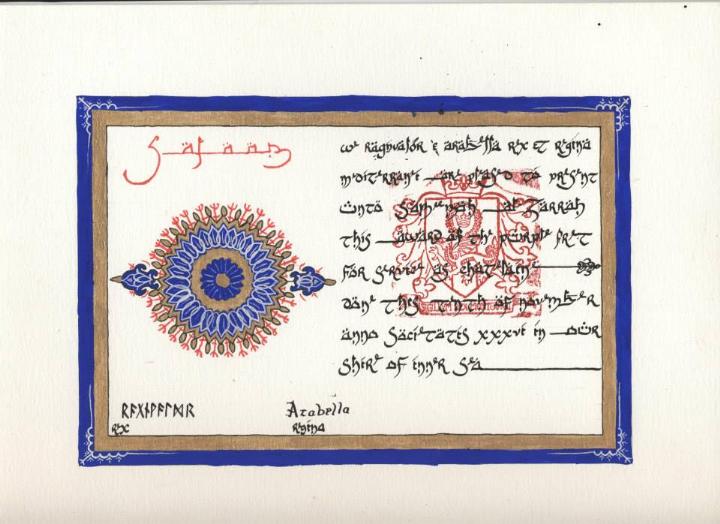 Salaam
we ragnvaldr & arabella rex et regina
mediterranei are pleased to present
unto Sameenah al Zarrah
this award of the purple fret
for service as chatelaine
done this tenth of november
anno Societates xxxvi in our
shire of inner sea
ᚱᚨᚷᚾᚹᚨᛚᛞᚱ Arabella
rex regina